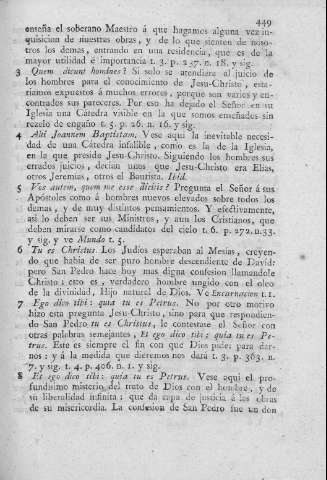 449
enseña el soberano Maestro á que hagamos alguna vez in-
quisicion de nuestras obras, y de lo que sienten de noso-
tros los demas, entrando en una residencia, que es de la
mayor utilidad é importancia t. 3. p. 257. n. 18. y sig.
3 Quem dicunt homines? Si solo se atendiera al juicio de
los hombres para el conocimiento de Jesu-Christo, esta-
riamos expuestos á muchos errores, porque son varios y en-
contrados sus pareceres. Por eso ha dejado el Señor en su
Iglesia una Cátedra visible en la que somos enseñados sin
rezelo de engaño t. 5. p. 26. n. 16. y sig.
4 Alii Joannem Baptistam. Vese aqui la inevitable necesi-
dad de una Cátedra infalible, como es la de la Iglesia,
en la que preside Jesu-Christo. Siguiendo los hombres sus
errados juicios, decian unos que Jesu-Christo era Elias,
otros Jeremias, otros el Bautista. Ibid.
5 Vos autem, quem me esse dicitis? Pregunta el Señor á sus
Apóstoles como á hombres nuevos elevados sobre todos los
demas, y de muy distintos pensamientos. Y efectivamente,
asi lo deben ser sus Ministros, y aun los Cristianos, que
deben mirarse como candidatos del cielo t. 6. p. 272. n. 33.
y sig. y ve Mundo t. 5.
6 Tu es Christus. Los Judíos esperaban al Mesias, creyen-
do que habia de ser puro hombre descendiente de David:
pero San Pedro hace hoy mas digna confesion llamandole
Christo; esto es, verdadero hombre ungido con el oleo
de la divinidad, Hijo natural de Dios. Ve Encarnacion t. 1.
7 Ego dico tibi: quia tu es Petrus. No por otro motivo
hizo esta pregunta Jesu-Christo, sino para que respondien-
do San Pedro tu es Christus, le contestase el Señor con
otras palabras semejantes, Et ego dico tibi: quia tu es Pe-
trus. Este es siempre el fin con que Dios pide: para dar-
nos: y á la medida que dieremos nos dará t. 3. p. 363. n.
7. y sig. t. 4. p. 406. n. 1. y sig.
8 Et ego dico tibi: quia tu es Petrus. Vese aqui el pro-
fundisimo misterio del trato de Dios con el hombre, y de
su liberalidad infinita: que da capa de justicia á las obras
de su misericordia. La confesion de San Pedro fue un don